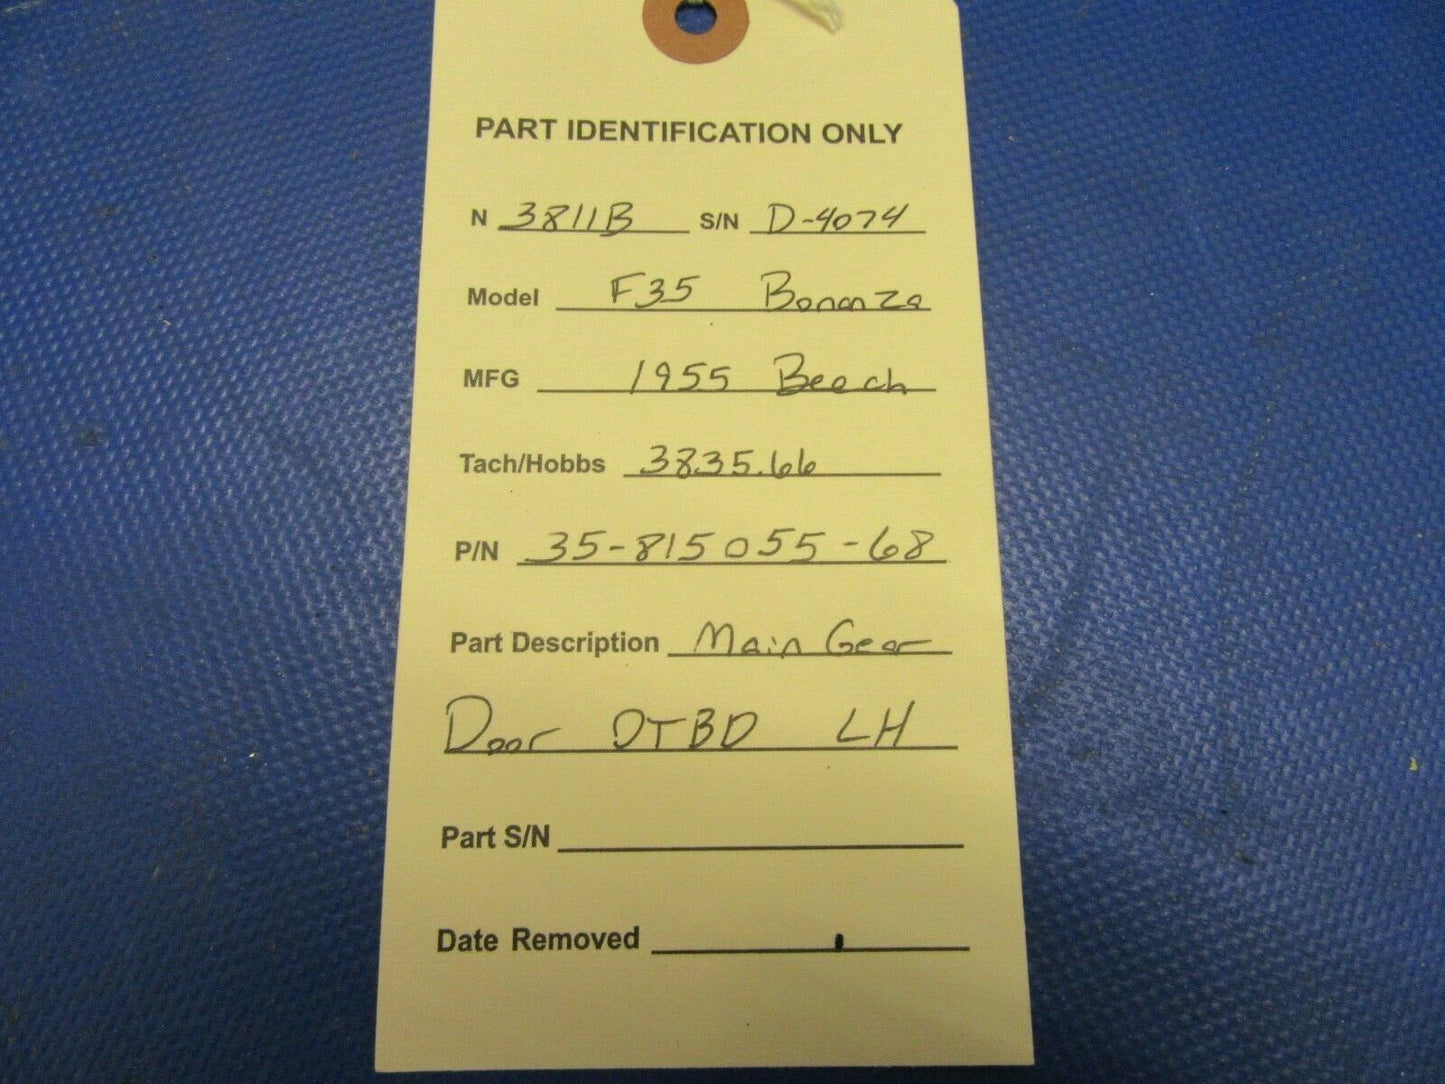 PART IDENTIFICATION ONLY
N 3811B S/N D-4074
Model F35 Bonanza
MFG 1955 Beech
Tach/Hobbs 3835.66
P/N 35-815055-68
Part Description Main Gear
Door OTBD LH
Part S/N
Date Removed